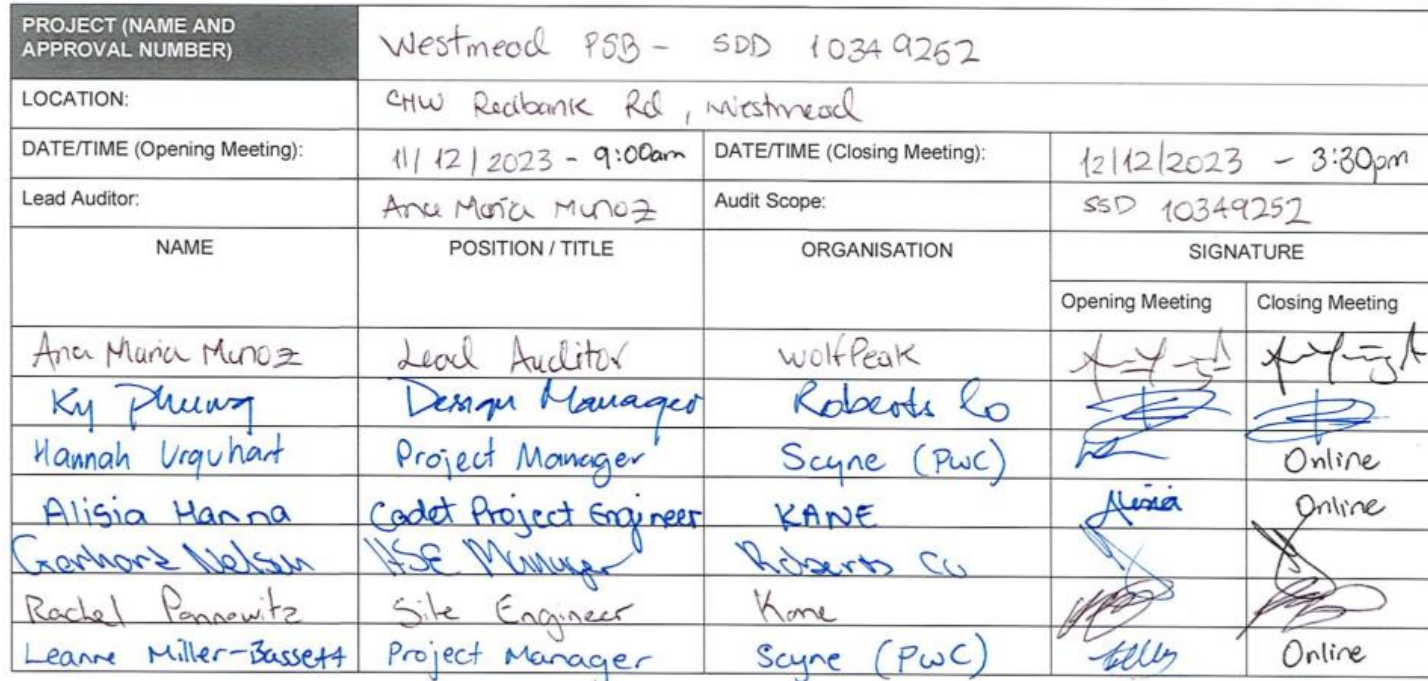 PROJECT (NAME AND APPROVAL NUMBER) Westmead PSB - SDD 10349252
LOCATION: CHW Redbank Rd, Westmead
DATE/TIME (Opening Meeting): 11/12/2023 - 9:00am DATE/TIME (Closing Meeting): 12/12/2023 - 3:30pm
Lead Auditor: Ana Maria Munoz Audit Scope: SSD 10349252
NAME POSITION / TITLE ORGANISATION SIGNATURE
Opening Meeting Closing Meeting
Ana Maria Munoz Lead Auditor WolfPeak
Ky Phung Design Manager Roberts Co
Hannah Urquhart Project Manager Scyne (PwC) Online
Alisia Hanna Cadet Project Engineer KANE Alisia Online
Nelson HSE Manager Roberts Co
Rachel Pannowitz Site Engineer Kane
Leanne Miller-Bassett Project Manager Scyne (PwC) Online